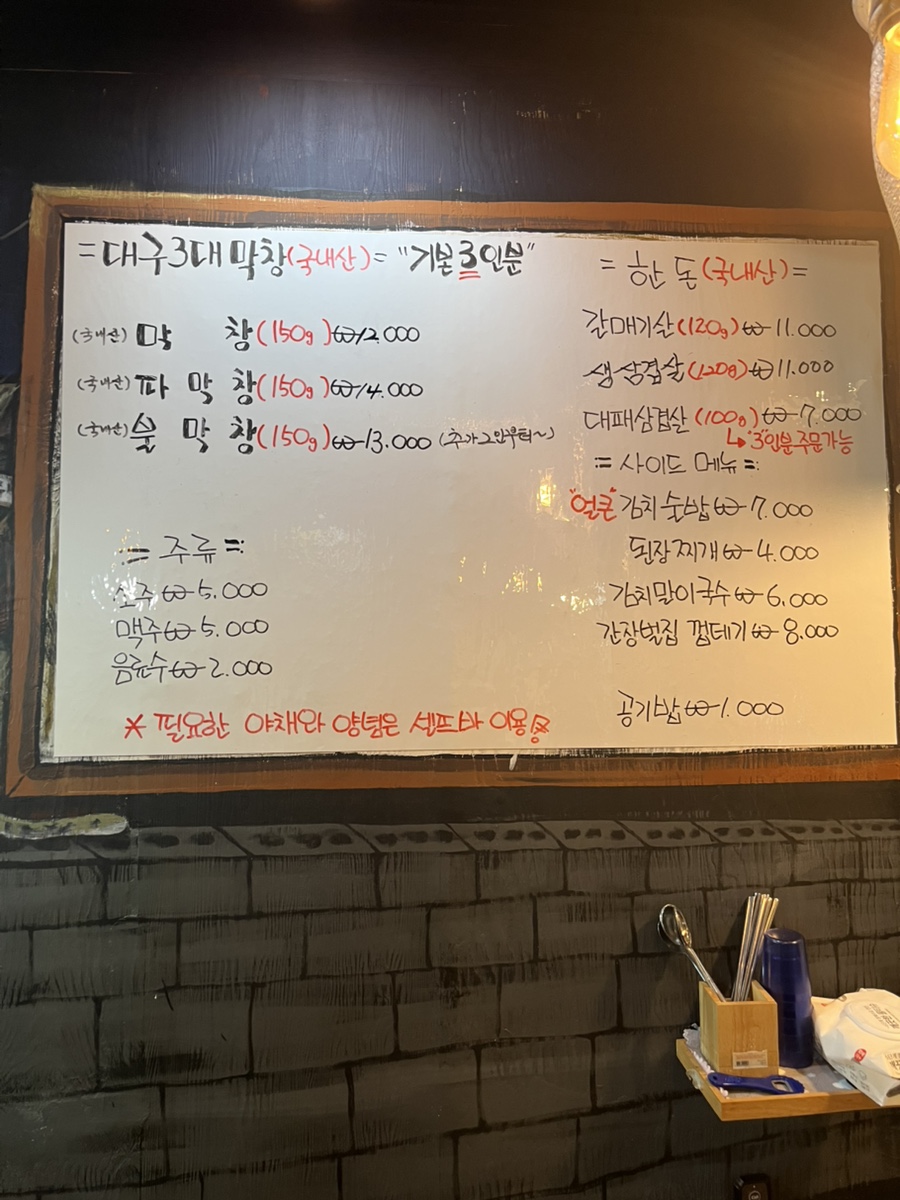 = 대구3대 막창(국내산) = "기본 3인분"
(국내산) 막 창(150g)₩12.000
(국내산) 파 막 창(150g)₩14.000
(국내산) 술 막 창(150g)₩13.000 (추가 2인부터~)
= 주류 =
소주 ₩5.000
맥주 ₩5.000
음료수 ₩2.000
* 필요한 야채와 양념은 셀프바 이용
= 한 돈(국내산) =
갈매기살(120g)₩11.000
생삼겹살(120g)₩11.000
대패삼겹살(100g)₩7.000
↳"3"인분 주문가능
= 사이드 메뉴 =
"얼큰" 김치 술밥₩7.000
된장찌개₩4.000
김치말이국수₩6.000
간장벌집 껍데기₩8.000
공기밥₩1.000